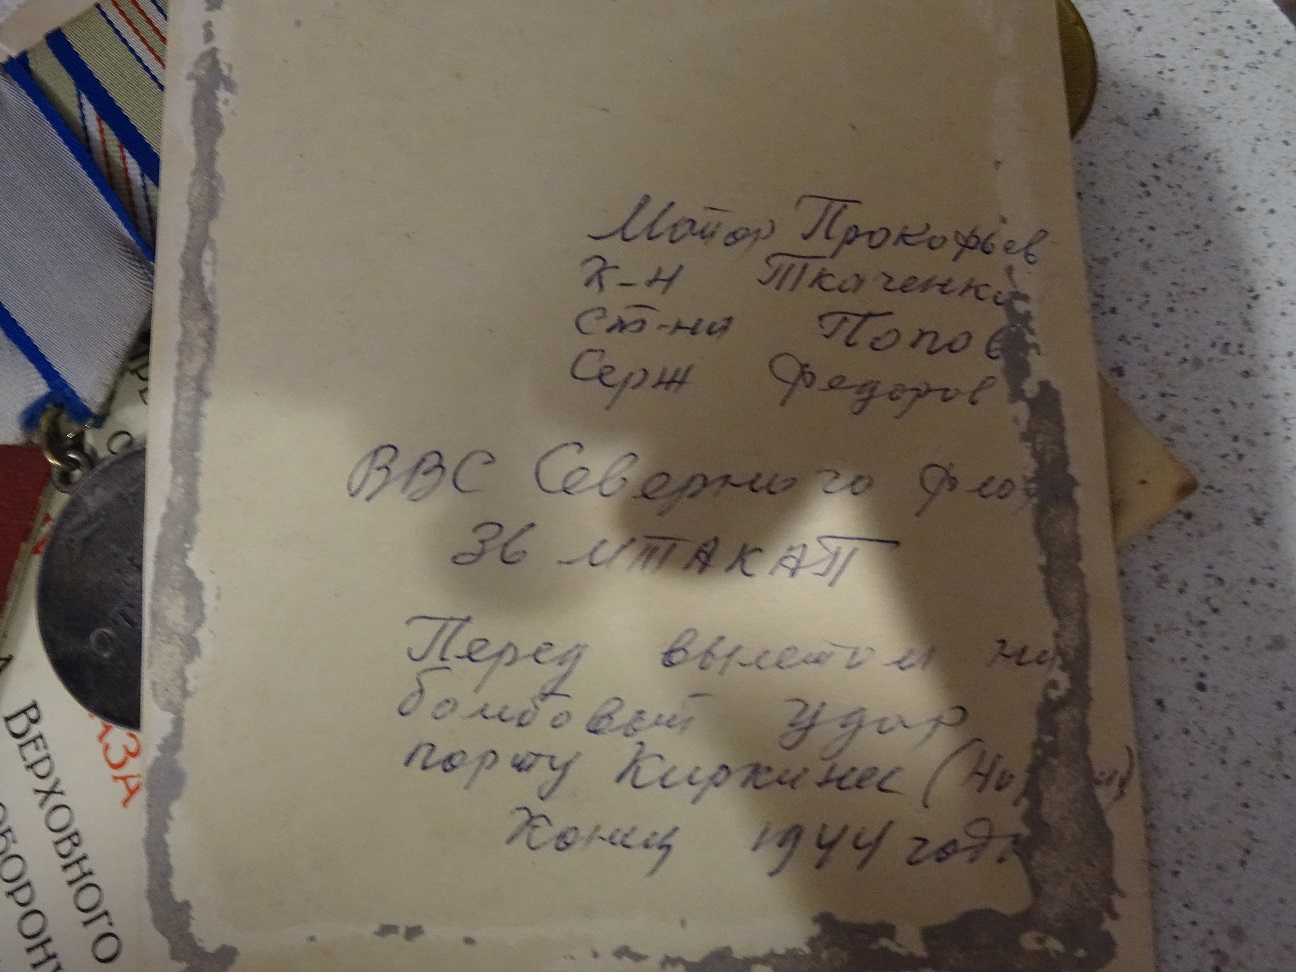 Майор Прокофьев
К-н Ткаченко
ст-на Попов
Серж Федоров
ВВС Северного Фло
36 МТАКАП
Перед вылетом на
бомбовый удар
порту Киркинес (Но
Конец 1944 года
АЗА
ВЕРХОВНОГО
ОБОРОН